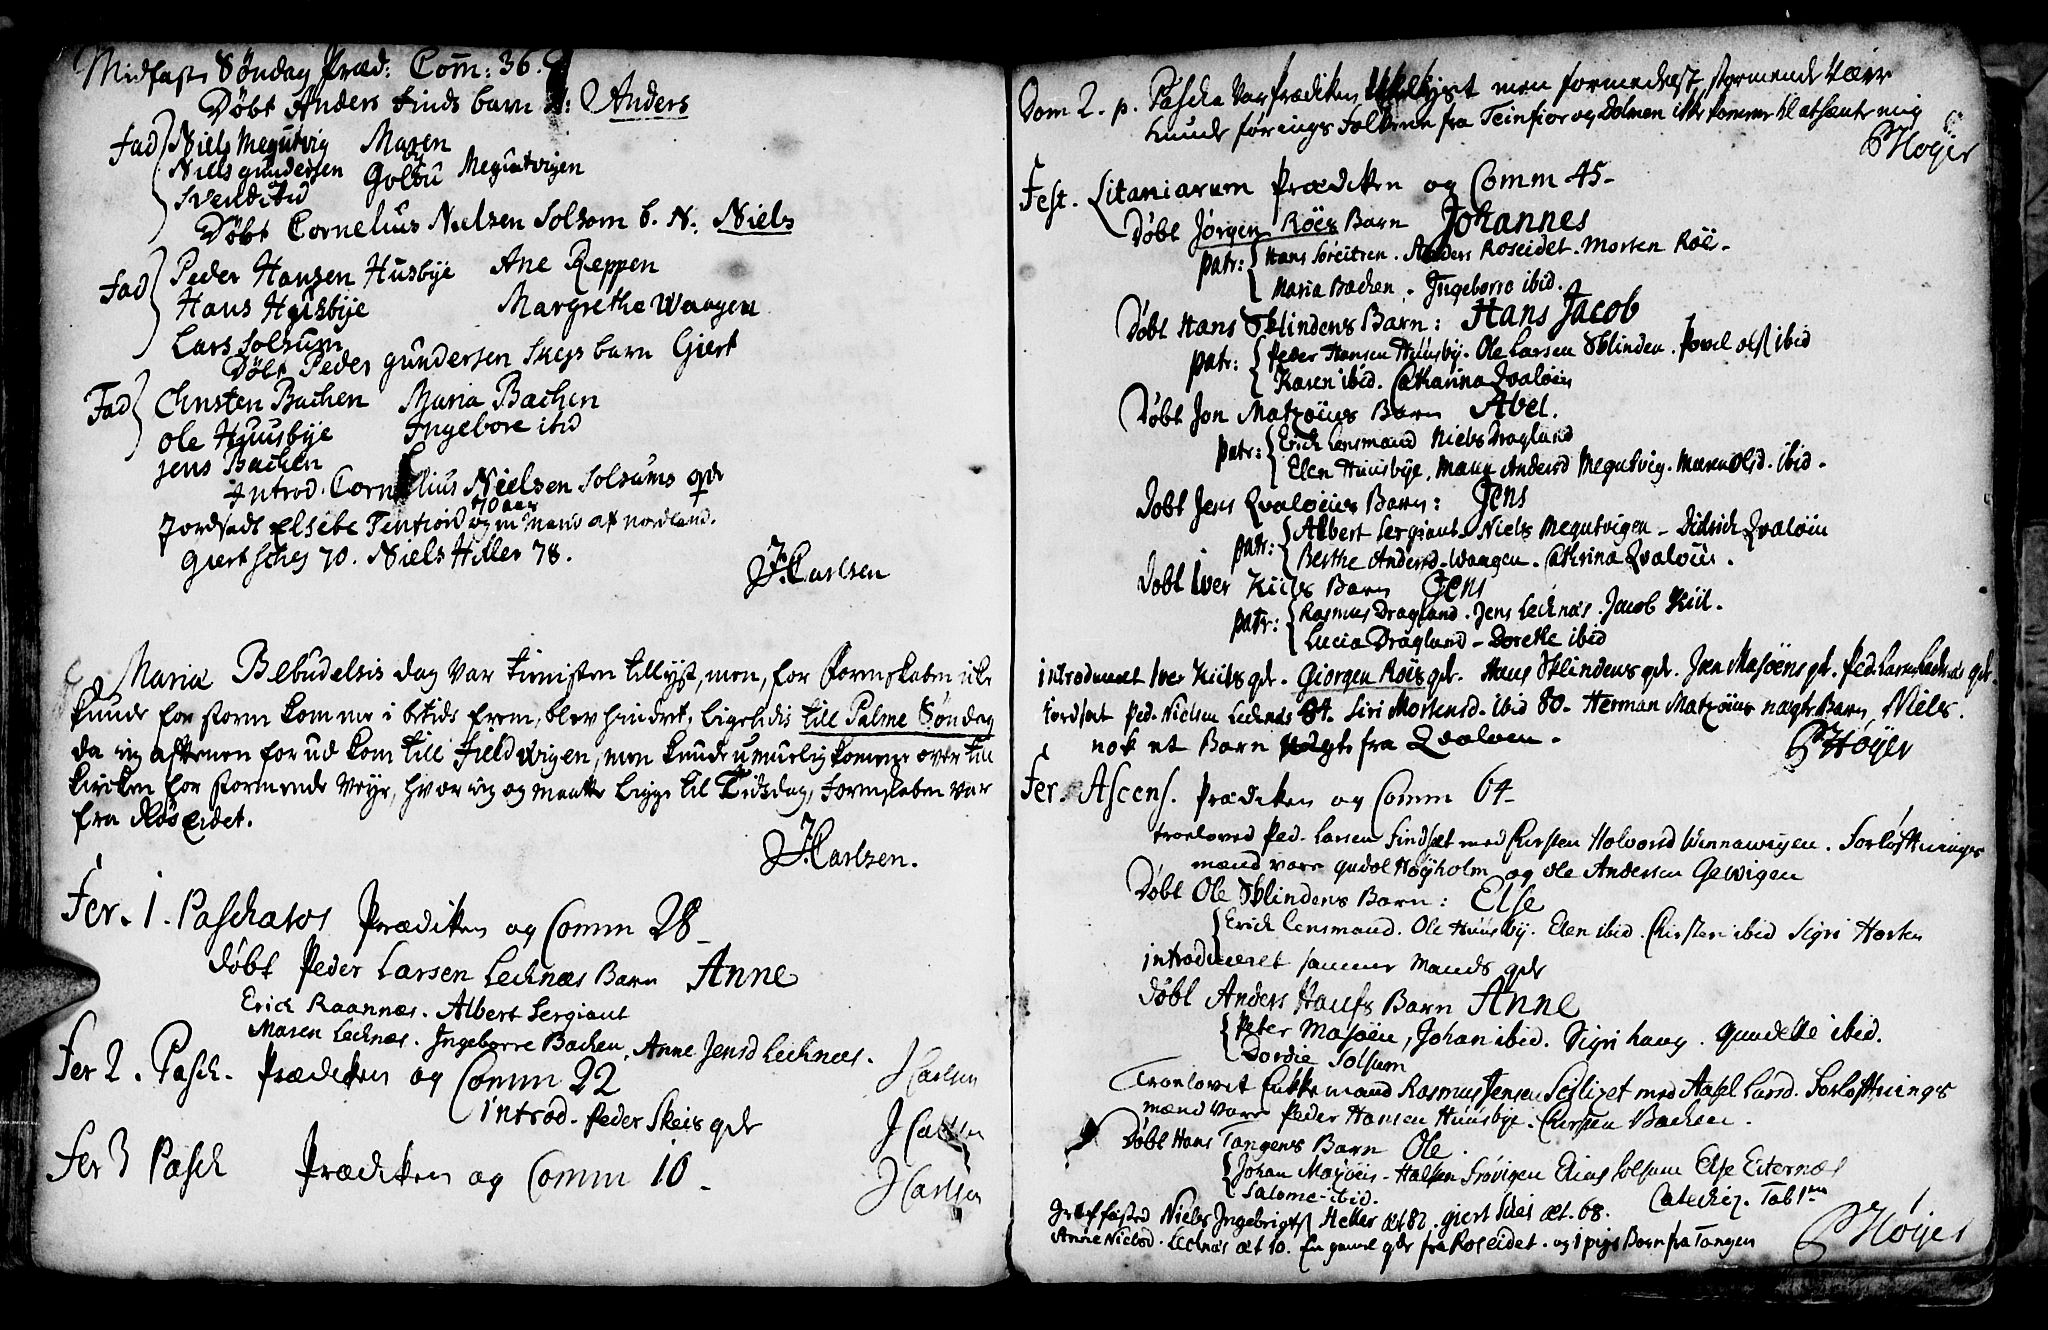 Midfaste Søndag Præd: Com: 36.
Døbt Anders Finds barn N: Anders
Fad Niels Megutvig Maren
Niels gundersen Golbu Megudtvigen
Svend ibid
Døbt Cornelius Nielsen Solsom b. N: Niels
Fad Peder Hansen Husbye Ane Reppen
Hans Husbye Margrethe Waagen
Lars Solsum
Døbt Peder gundersen Skejs barn Giert
Fad Christen Bachen Maria Bachen
Ole Huusbye Ingebore ibid
Jens Bachen
Introd. Cornelius Nielsen Solsums qdr
70 aar
Jordsadt Elsebe og en Mand af nordland.
Giert 70. Niels Hiller 78.
J. Carlsen
Mariæ Bebudelsis dag var tienisten tillyst, men, for
kunde for storm komme i betids frem, blev hindret, ligeledis till Palme Søndag
da ieg aftenen for ud kom till Fieldvigen, men kunde umuelig komme over till
kircken for stormende veyr, hvor ieg og maatte ligge til Tidsdag, var
fra Røseidet.
J. Carlsen.
Fer. 1. Paschatos Prædiken og Comm 28
døbt Peder Larsen Lecknæs Barn Anne
Erich Raannæs. Albert Sergiant
Maren Lecknæs. Ingeborre Bachen, Anne Jensd Lecknæs.
J Carlsen
Fer 2. Pasch. Prædiken og Comm 22
introd. Peder Skeis qdr
J Carlsen
Fer 3 Pasch Prædiken og Comm 10
J Carlsen
Dom 2. p. Pascha var Prædiken men formedelst stormende Væir
kunde førings folkene fra og Dolmen ikke komme til at hænte mig
P Høyer
Fest. Litaniarum Prædiken og Comm 45
Døbt Jørgen Röes Barn Johannes
patr: Hans Anders Roseidet. Morten Röe
Maria Bachen. Ingeborre ibid.
Døbt Hans Sklindens Barn: Hans Jacob
patr: Peder Hansen Huusby. Ole Larsen Sklinden. Povel ols ibid
Karen ibid. Catharina Qvaløen
Døbt Jon Matzöius Barn Abel.
patr: Erich Lensmand Niels Dragland
Elen Huusbye. Maria Andersd Megutvig. Maren olsd. ibid.
Døbt Jens Qvaløens Barn: Jens
patr: Albert Sergiant. Niels Megutvigen - Didrich Qvaløen
Berthe Andersd Waagen. Cathrina Qvaløen.
Døbt Iver Kiils Barn Jens
patr: Rasmus Dragland. Jens Lecknæs. Jacob Kiil.
Lucia Dragland - Dorethe ibid
introduceret Iver Kiils qdr. Giørgen Röes qdr. Hans Sklindens qdr. Jon Masøens qd. Ped. Larss Lecknæs qdr.
Jordsat Ped. Nielsen Lecknæs 84. Siri Mortensd. ibid 80. Herman Matzöius Barn, Niels.
nok et Barn fra Qvaløen.
P Høyer
Fer. Ascens. Prædiken og Comm 64
troeloved Ped. Larsen Findset med Kirsten Holvorsd Winnawigen. Forløftnings
mænd vare gudol Høyholm og Ole Andersen Gewigen
Døbt Ole Sklindens Barn: Else
Erich Lensmand. Ole Huusby. Elen ibid. Kirsten ibid Sigri
introduceret samme Mands qdr
døbt Anders Haufs Barn Anne
Peter Masøen, Johan ibid. Sigri haug. Gundelle ibid.
Dordie Solsum
Troelovet Enkemand Rasmus Jensen med Larsd. Forløftnings
mænd vare Peder Hansen Huusbye. Christen Bachen.
Døbt Hans Tangens Barn Ole.
Johan Masøen - Halsten Elias Solsum Else Eiternæs
Salome ibid.
Catechiz. Tab 1ma
Niels Ingebrigts Heller æt 82. giert Skei æt. 68.
Anne Nielsd. Lecknæs æt 10. En gamel qdr fra Roseidet. og 1 pige Barn fra Tangen
P Høyer